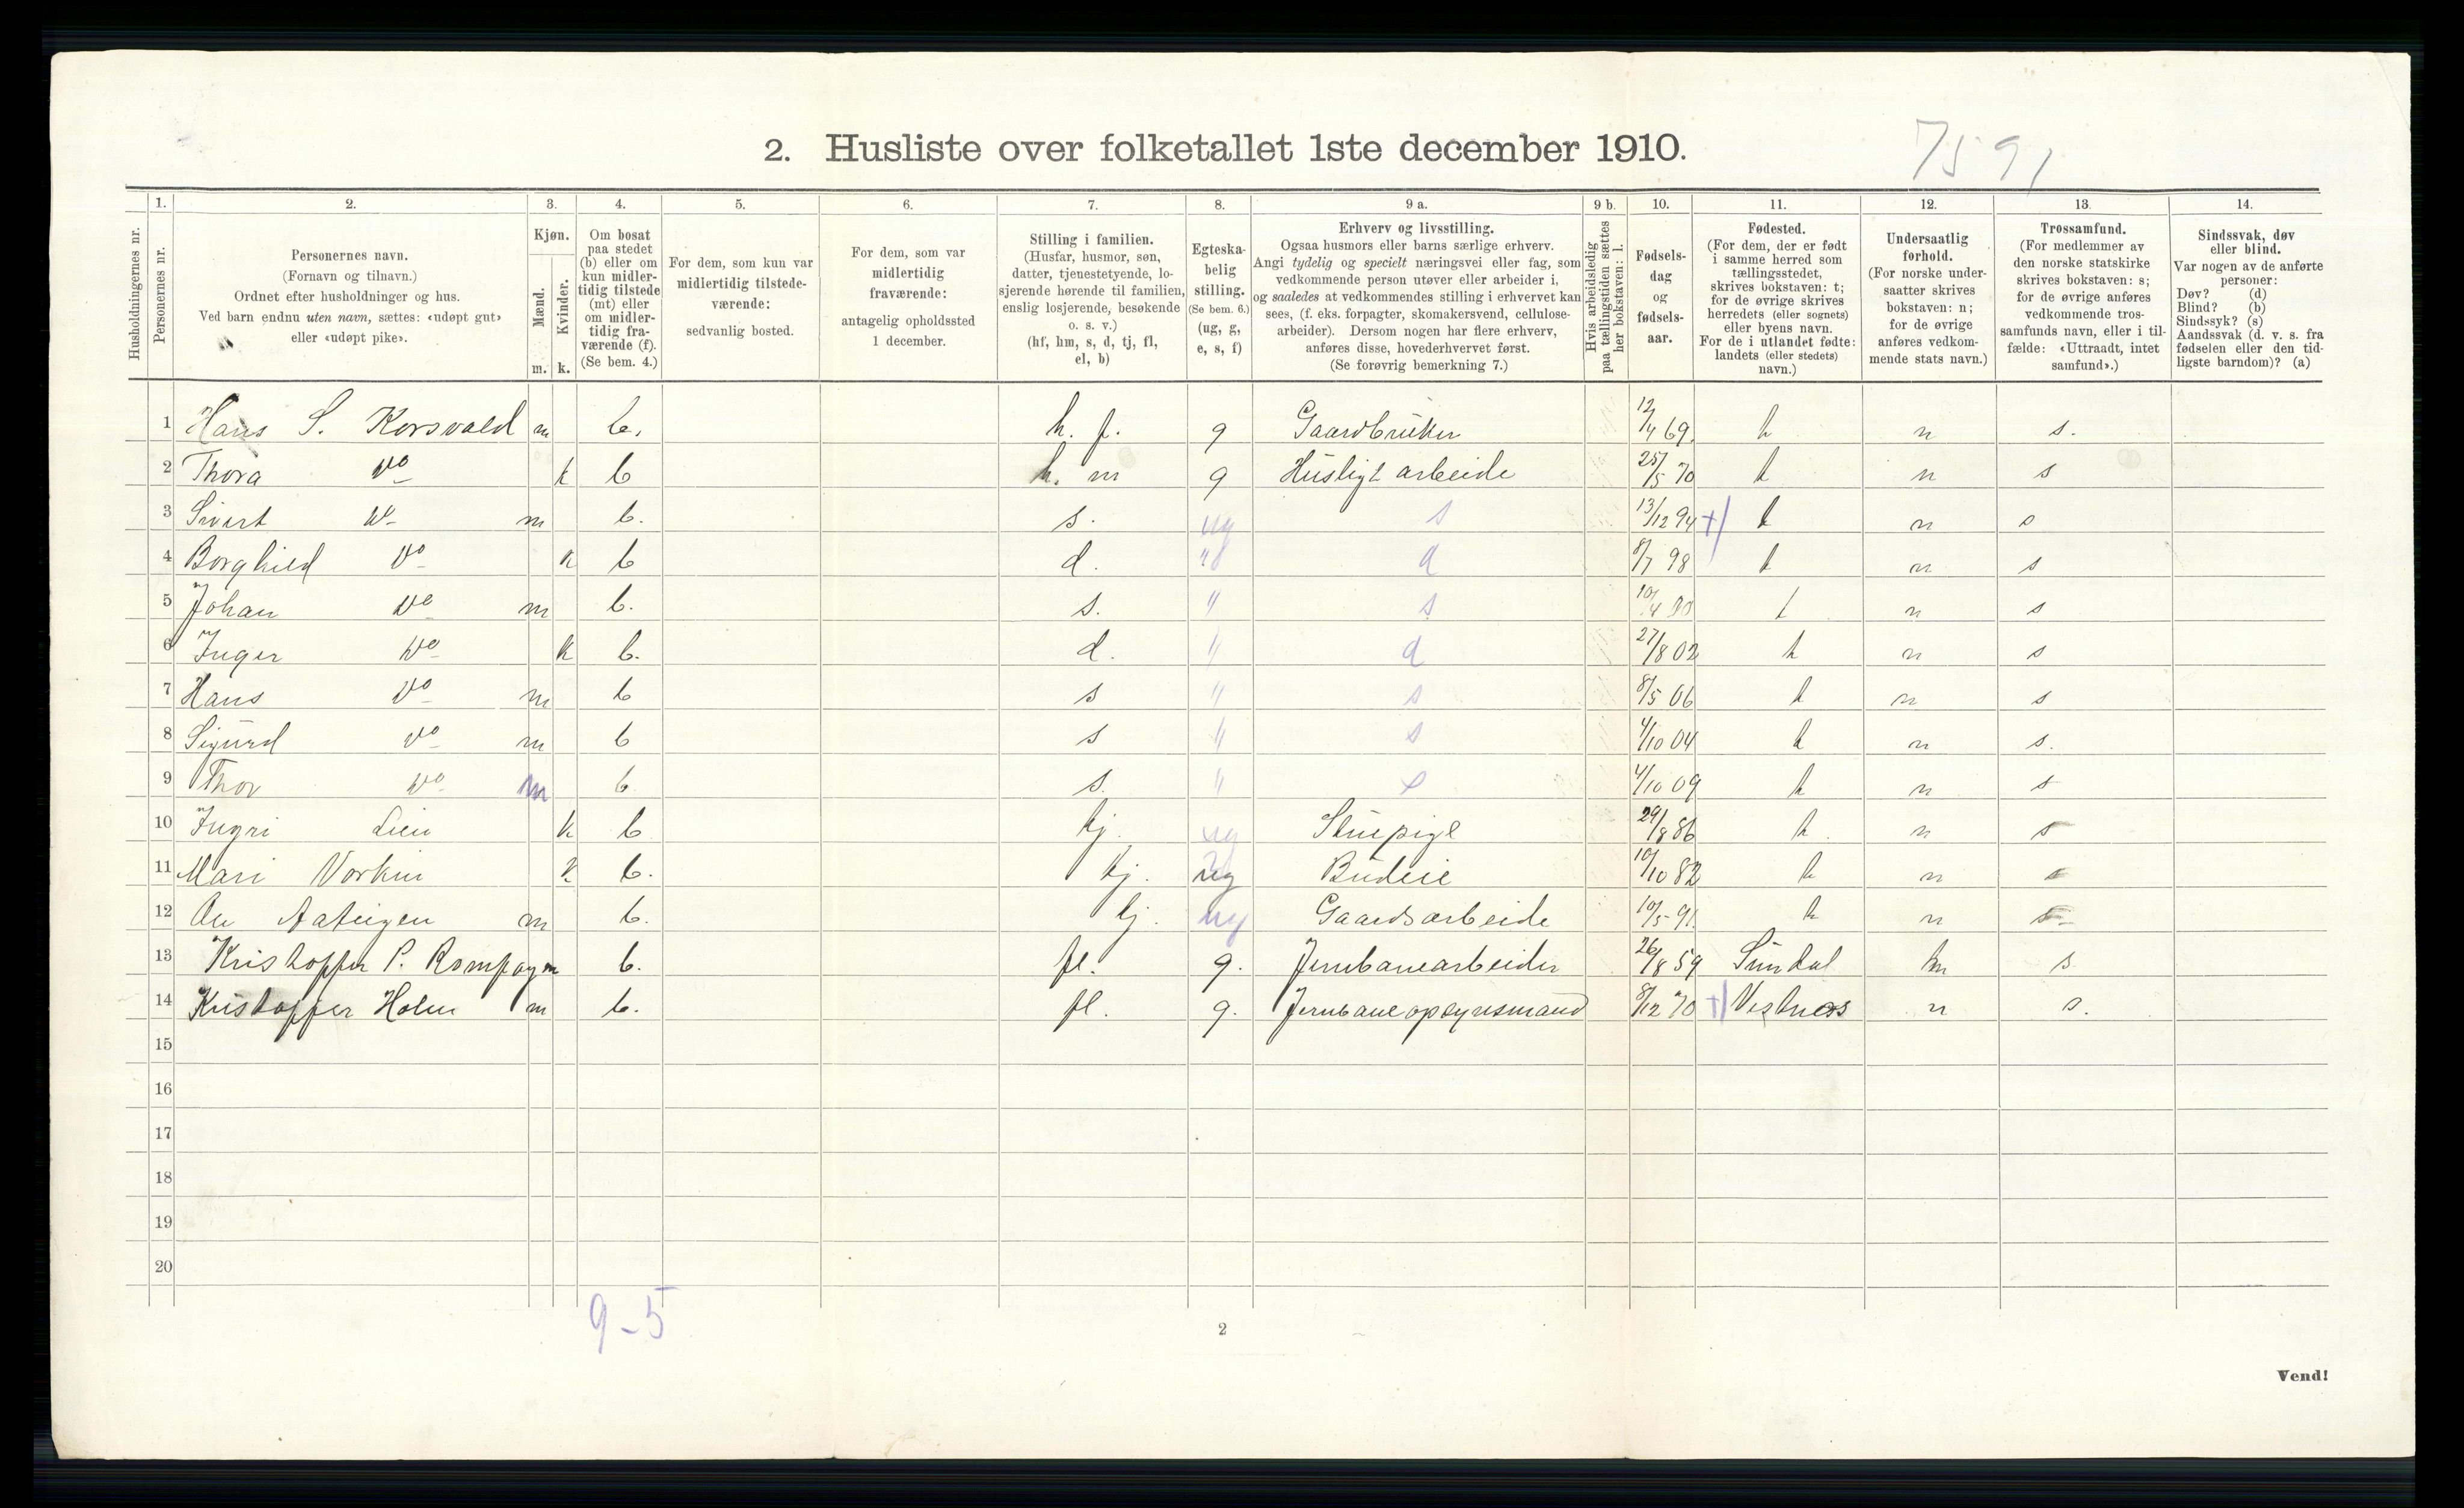 2. Husliste over folketallet 1ste december 1910.
7591
Husholdningernes nr.
1.
Personernes nr.
2.
Personernes navn.
(Fornavn og tilnavn.)
Ordnet efter husholdninger og hus.
Ved barn endnu uten navn, sættes: «udøpt gut»
eller «udøpt pike».
3.
Kjøn.
Mænd.
Kvinder.
m. k.
4.
Om bosat
paa stedet
(b) eller om
kun midler-
tidig tilstede
(mt) eller
om midler-
tidig fra-
værende (f).
(Se bem. 4.)
5.
For dem, som kun var
midlertidig tilstede-
værende:
sedvanlig bosted.
6.
For dem, som var
midlertidig
fraværende:
antagelig opholdssted
1 december.
7.
Stilling i familien.
(Husfar, husmor, søn,
datter, tjenestetyende, lo-
sjerende hørende til familien,
enslig losjerende, besøkende
o. s. v.)
(hf, hm, s, d, tj, fl,
el, b)
8.
Egteska-
belig
stilling.
(Se bem. 6.)
(ug, g,
e, s, f)
9 a.
Erhverv og livsstilling.
Ogsaa husmors eller barns særlige erhverv.
Angi tydelig og specielt næringsvei eller fag, som
vedkommende person utøver eller arbeider i,
og saaledes at vedkommendes stilling i erhvervet kan
sees, (f. eks. forpagter, skomakersvend, cellulose-
arbeider). Dersom nogen har flere erhverv,
anføres disse, hovederhvervet først.
(Se forøvrig bemerkning 7.)
9 b.
Hvis arbeidsledig
paa tællingstiden sættes
her bokstaven: l.
10.
Fødsels-
dag
og
fødsels-
aar.
11.
Fødested.
(For dem, der er født
i samme herred som
tællingsstedet,
skrives bokstaven: t;
for de øvrige skrives
herredets (eller sognets)
eller byens navn.
For de i utlandet fødte:
landets (eller stedets)
navn.)
12.
Undersaatlig
forhold.
(For norske under-
saatter skrives
bokstaven: n;
for de øvrige
anføres vedkom-
mende stats navn.)
13.
Trossamfund.
(For medlemmer av
den norske statskirke
skrives bokstaven: s;
for de øvrige anføres
vedkommende tros-
samfunds navn, eller i til-
fælde: «Uttraadt, intet
samfund».)
14.
Sindssvak, døv
eller blind.
Var nogen av de anførte
personer:
Døv? (d)
Blind? (b)
Sindssyk? (s)
Aandssvak (d. v. s. fra
fødselen eller den tid-
ligste barndom)? (a)
1 Hans S. Korsvold m b. h. f. g Gaardbruker 12/4 69. t n s.
2 Thora do k b h. m g Husligt arbeide 25/5 70 t n s
3 Sivert do m b. s. ug s 13/12 94 t n s
4 Borghild do k b d. " d 8/7 98 t n s
5 Johan do m b. s. " s 10/4 00 t n s
6 Inger do k b. d. " d 27/8 02 t n s
7 Hans do m b s " s 8/5 06 t n s
8 Sigurd do m b s " s 4/10 04 t n s.
9 Thor do m b s. " s 4/10 09 t n s
10 Ingri Lien k b tj. ug Stuepige 29/8 86 t. n s
11 Mari Vorkin k b. tj. ug Budeie 10/10 82 t n s
12 m b. tj. ug Gaardsarbeide 10/5 91. t n s
13 Kristoffer P. m b. fl. g. Jernbanearbeider 26/8 59 Sundal n s
14 Kristoffer Holm m b. fl. g. Jernbaneopsynsmand 8/12 70 Vestnes n s.
15
16
17
18
19
20
9-5
2
Vend!